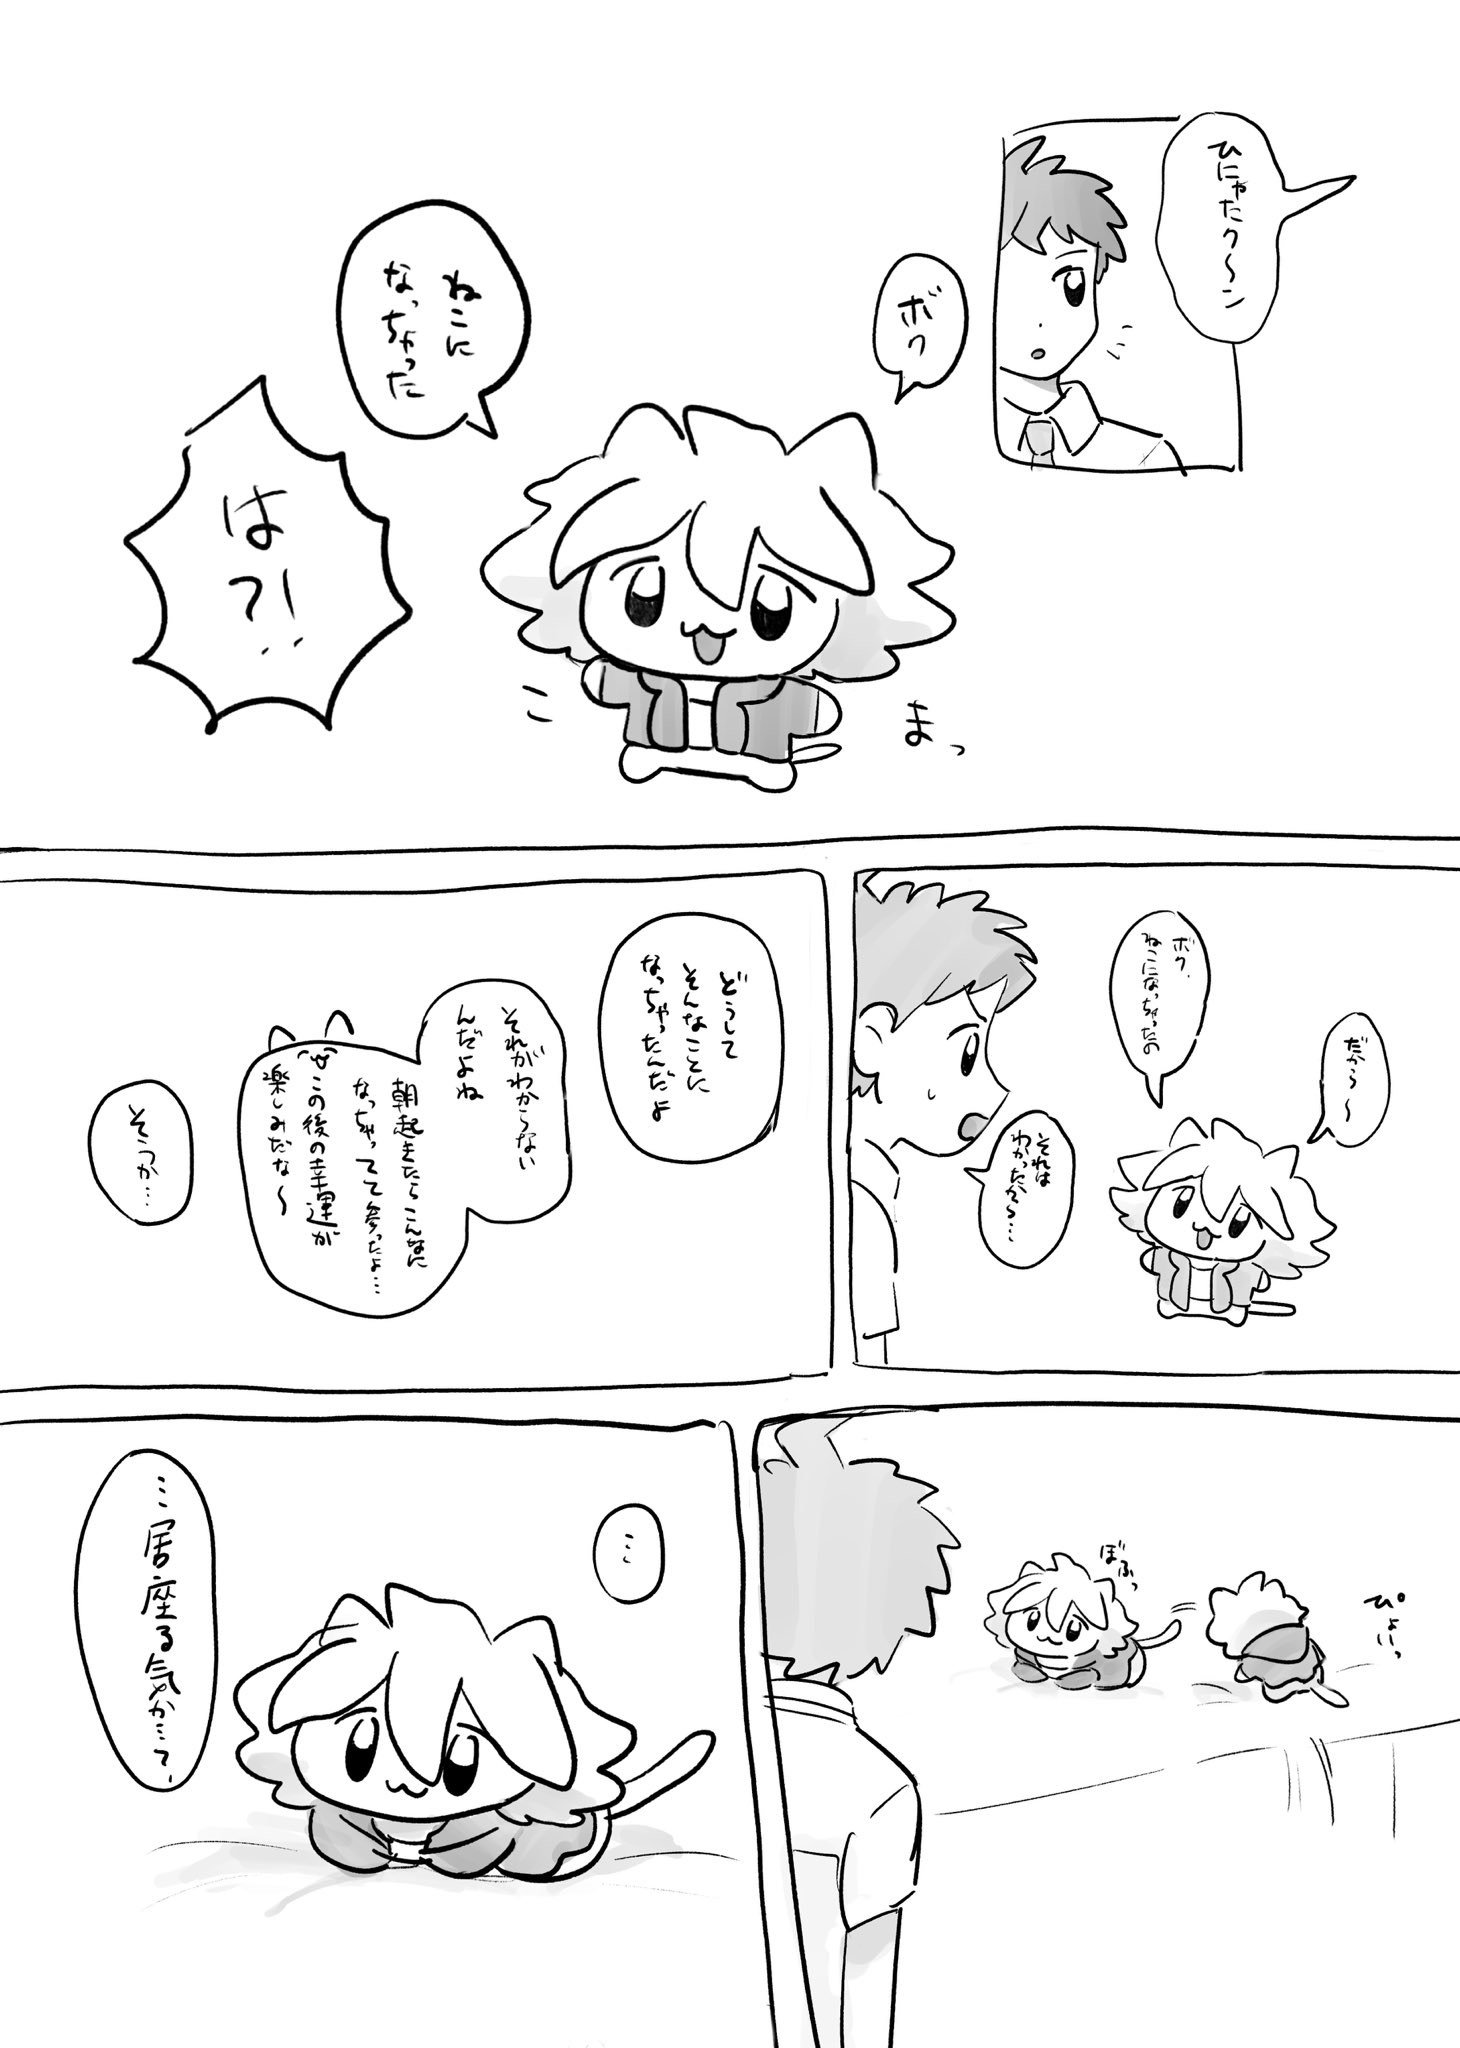 ひにゃたク〜ン
ボク
ねこに
なっちゃった
は?!
こ
まっ
だから〜
ボク、
ねこになっちゃったの
それは
わかったから…
どうして
そんなことに
なっちゃったんだよ
それがわからない
んだよね
朝起きたらこんなに
なっちゃってて参ったよ…
この後の幸運が
楽しみだな〜
そうか…
ぴょいっ
ぼふっ
…
…居座る気か…て、